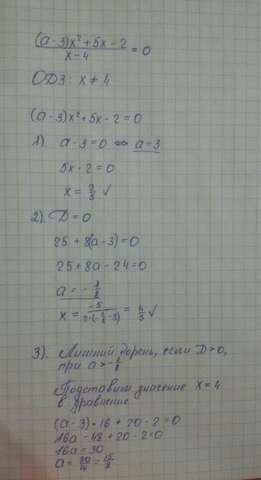 (a-3)x²+5x-2 / x-4 = 0
ОДЗ: x ≠ 4
(a-3)x²+5x-2=0
1). a-3=0 ⇔ a=3
5x-2=0
x = 2/5 ✓
2). D=0
25+8(a-3)=0
25+8a-24=0
a = -1/8
x = -5 / 2·(-1/8-3) = 4/5 ✓
3). Лишний корень, если D>0,
при a>-1/8
Подставим значение x=4
в уравнение
(a-3)·16+20-2=0
16a-48+20-2=0
16a=30
a = 30/16 = 15/8